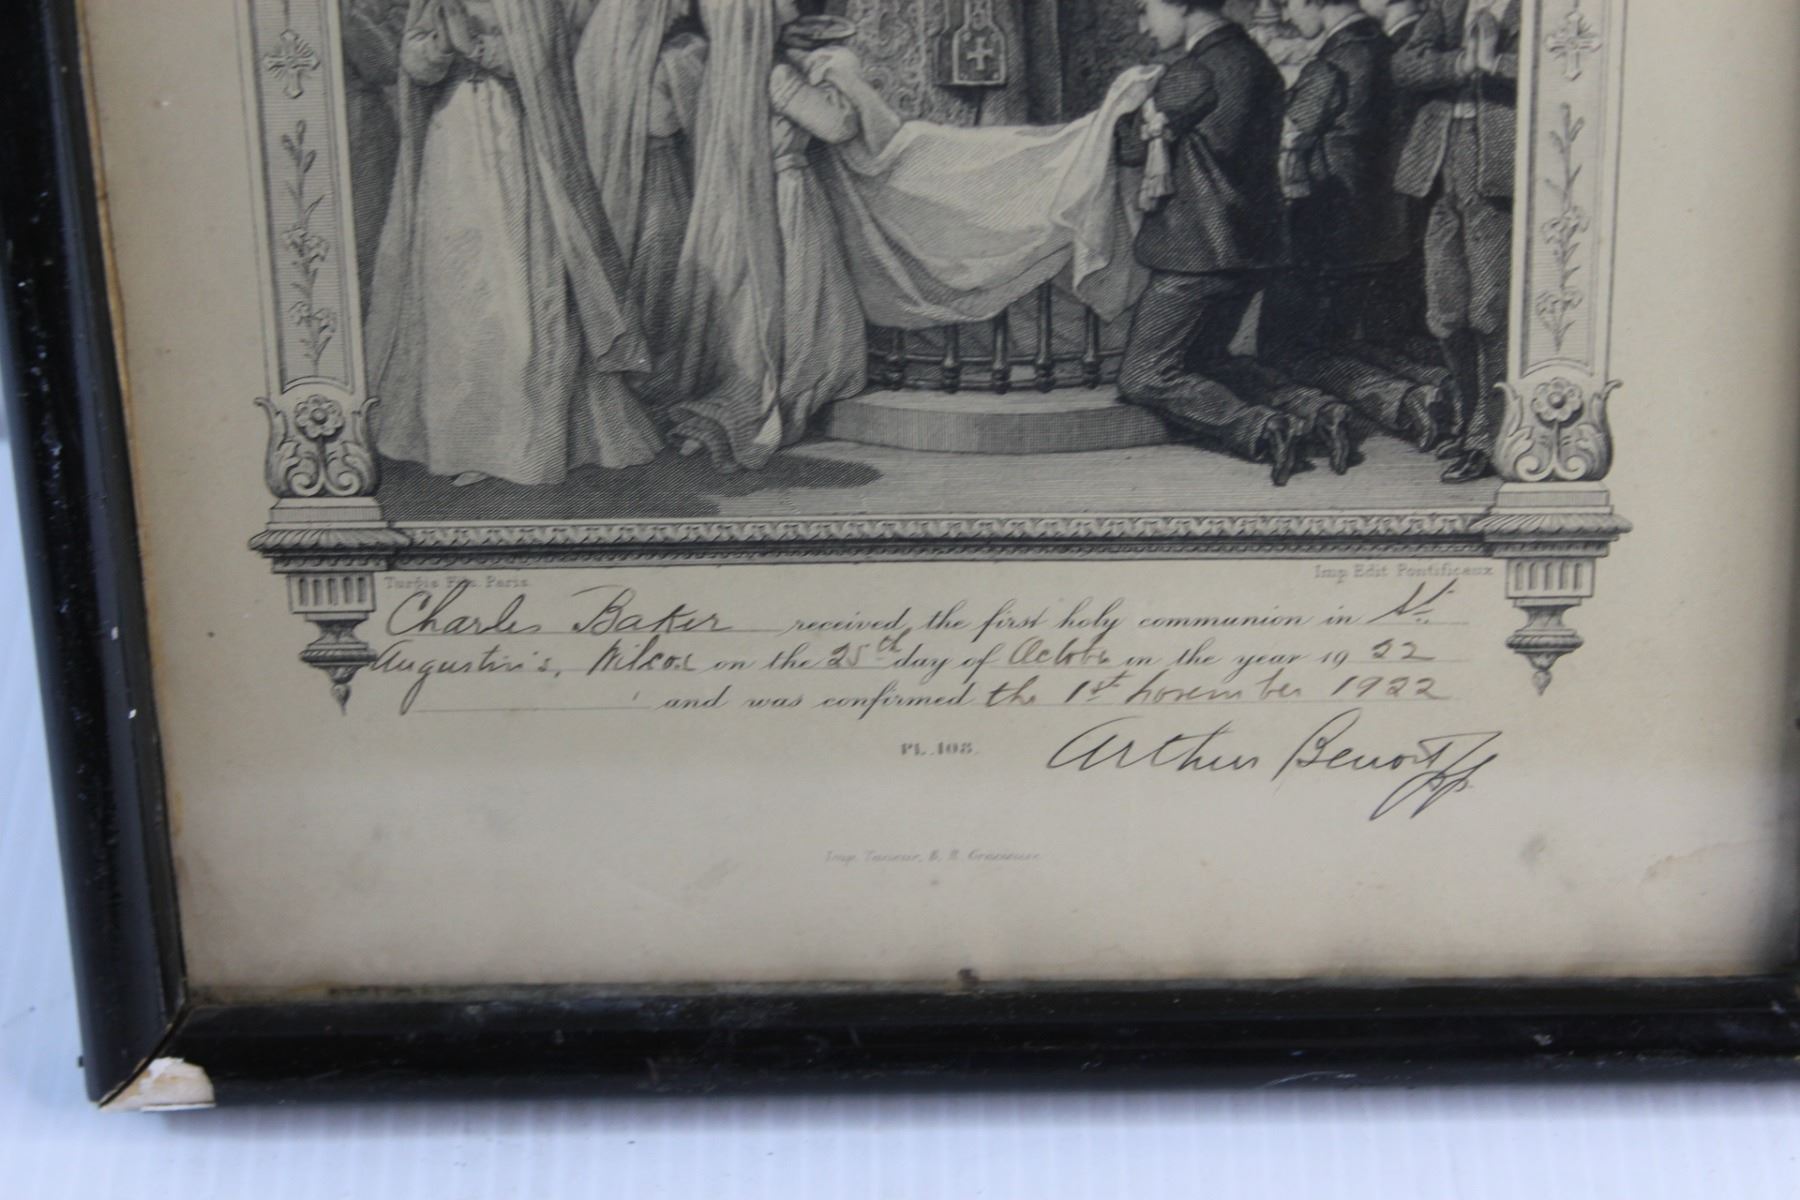 Turgis Fils. Paris. Imp. Edit. Pontificaux
Charles Baker received the first holy communion in St.
Augustin's, Wilcox on the 25th day of October in the year 19 22
and was confirmed the 1st november 1922
PL. 108.
Arthur Benoit pp.
Imp.